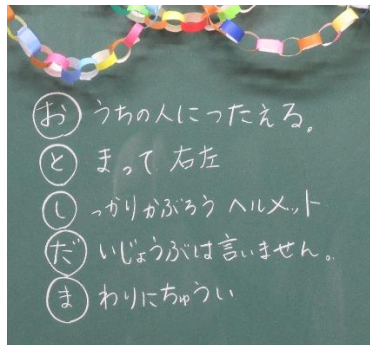 おうちの人につたえる。
とまって 右左
しっかりかぶろう ヘルメット
だいじょうぶは言いません。
まわりにちゅうい